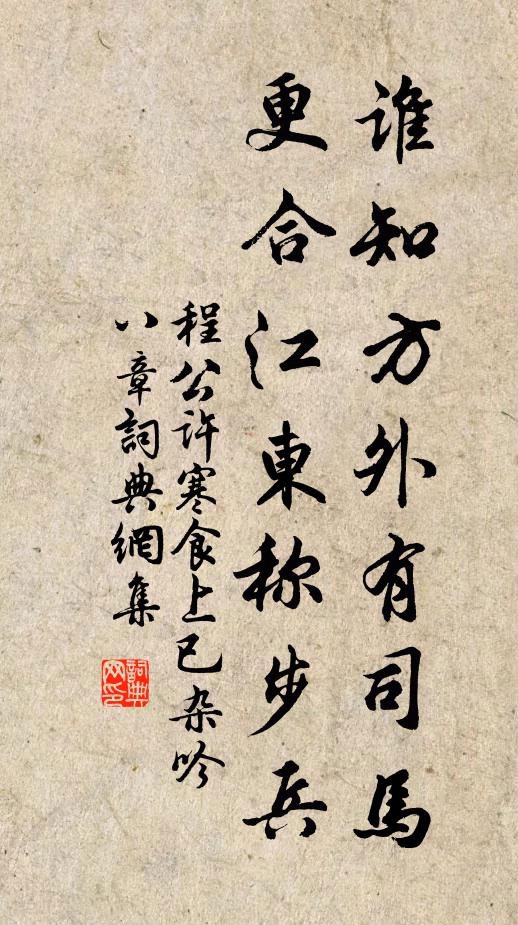 誰知方外有司馬
更合江東称步兵
程公许寒食上巳杂吟
八章詞典網集
詞典网印